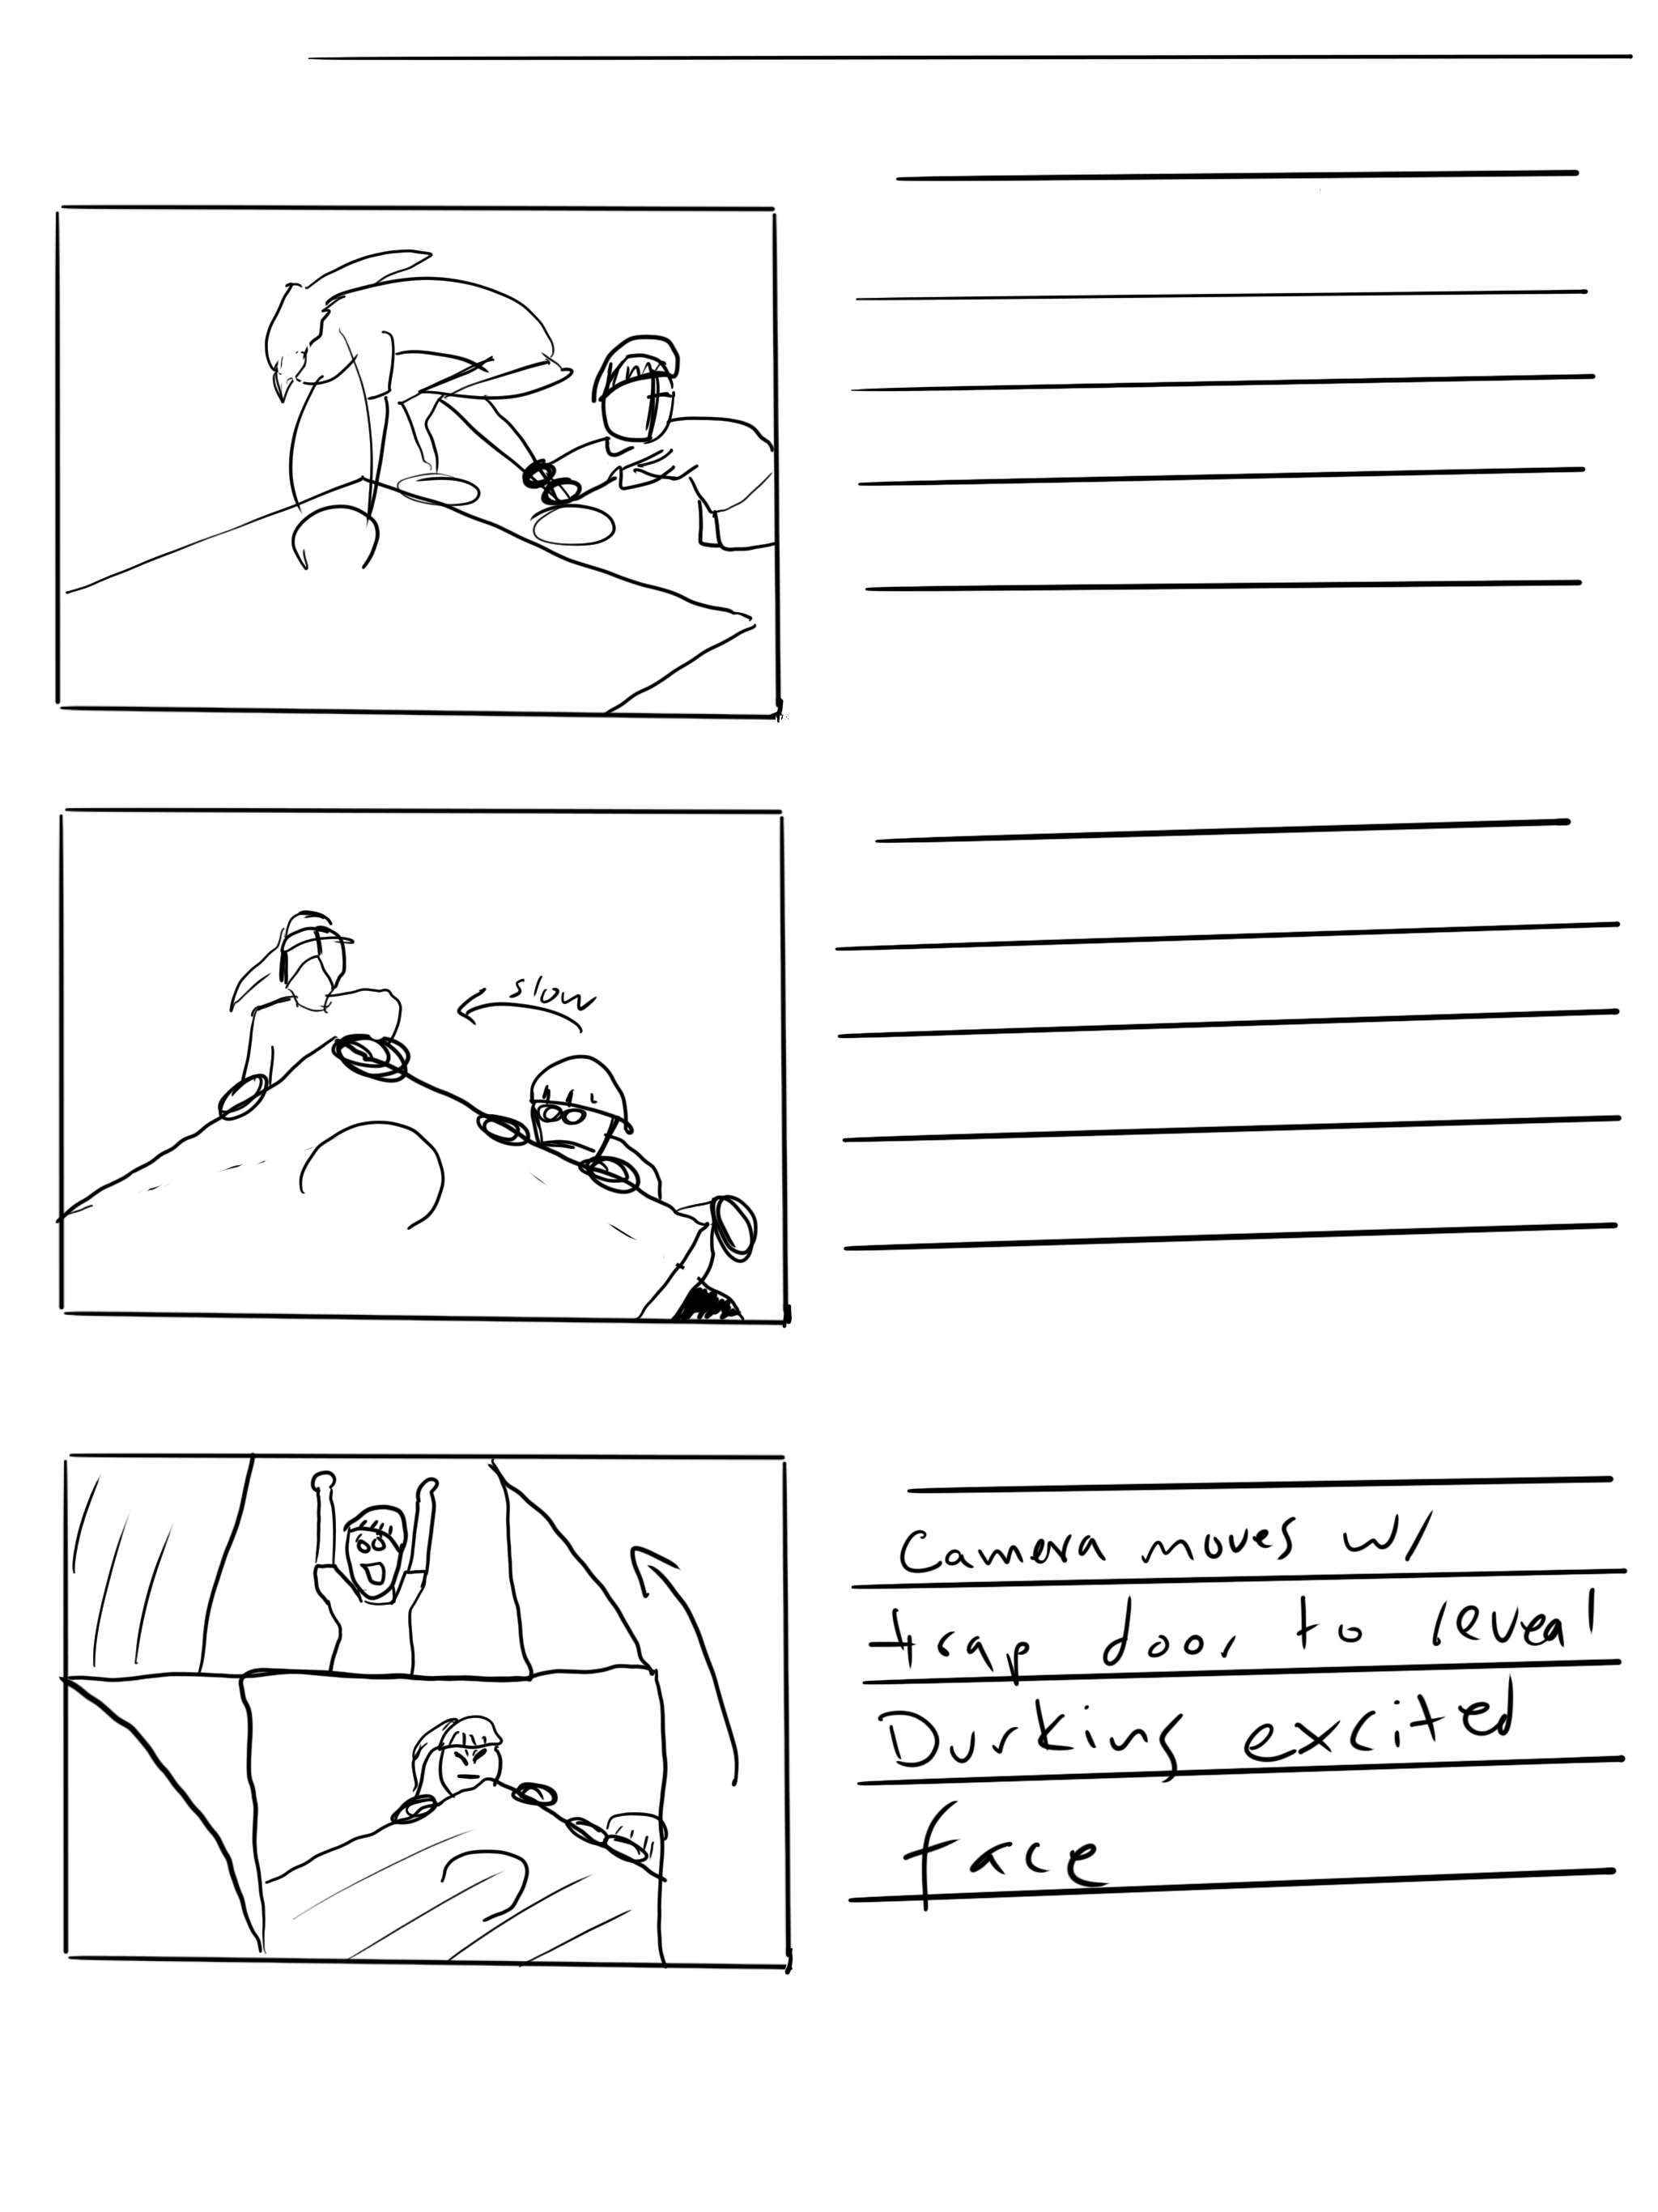 slow
Camera moves w/
trap door to reveal
Durking excited
face